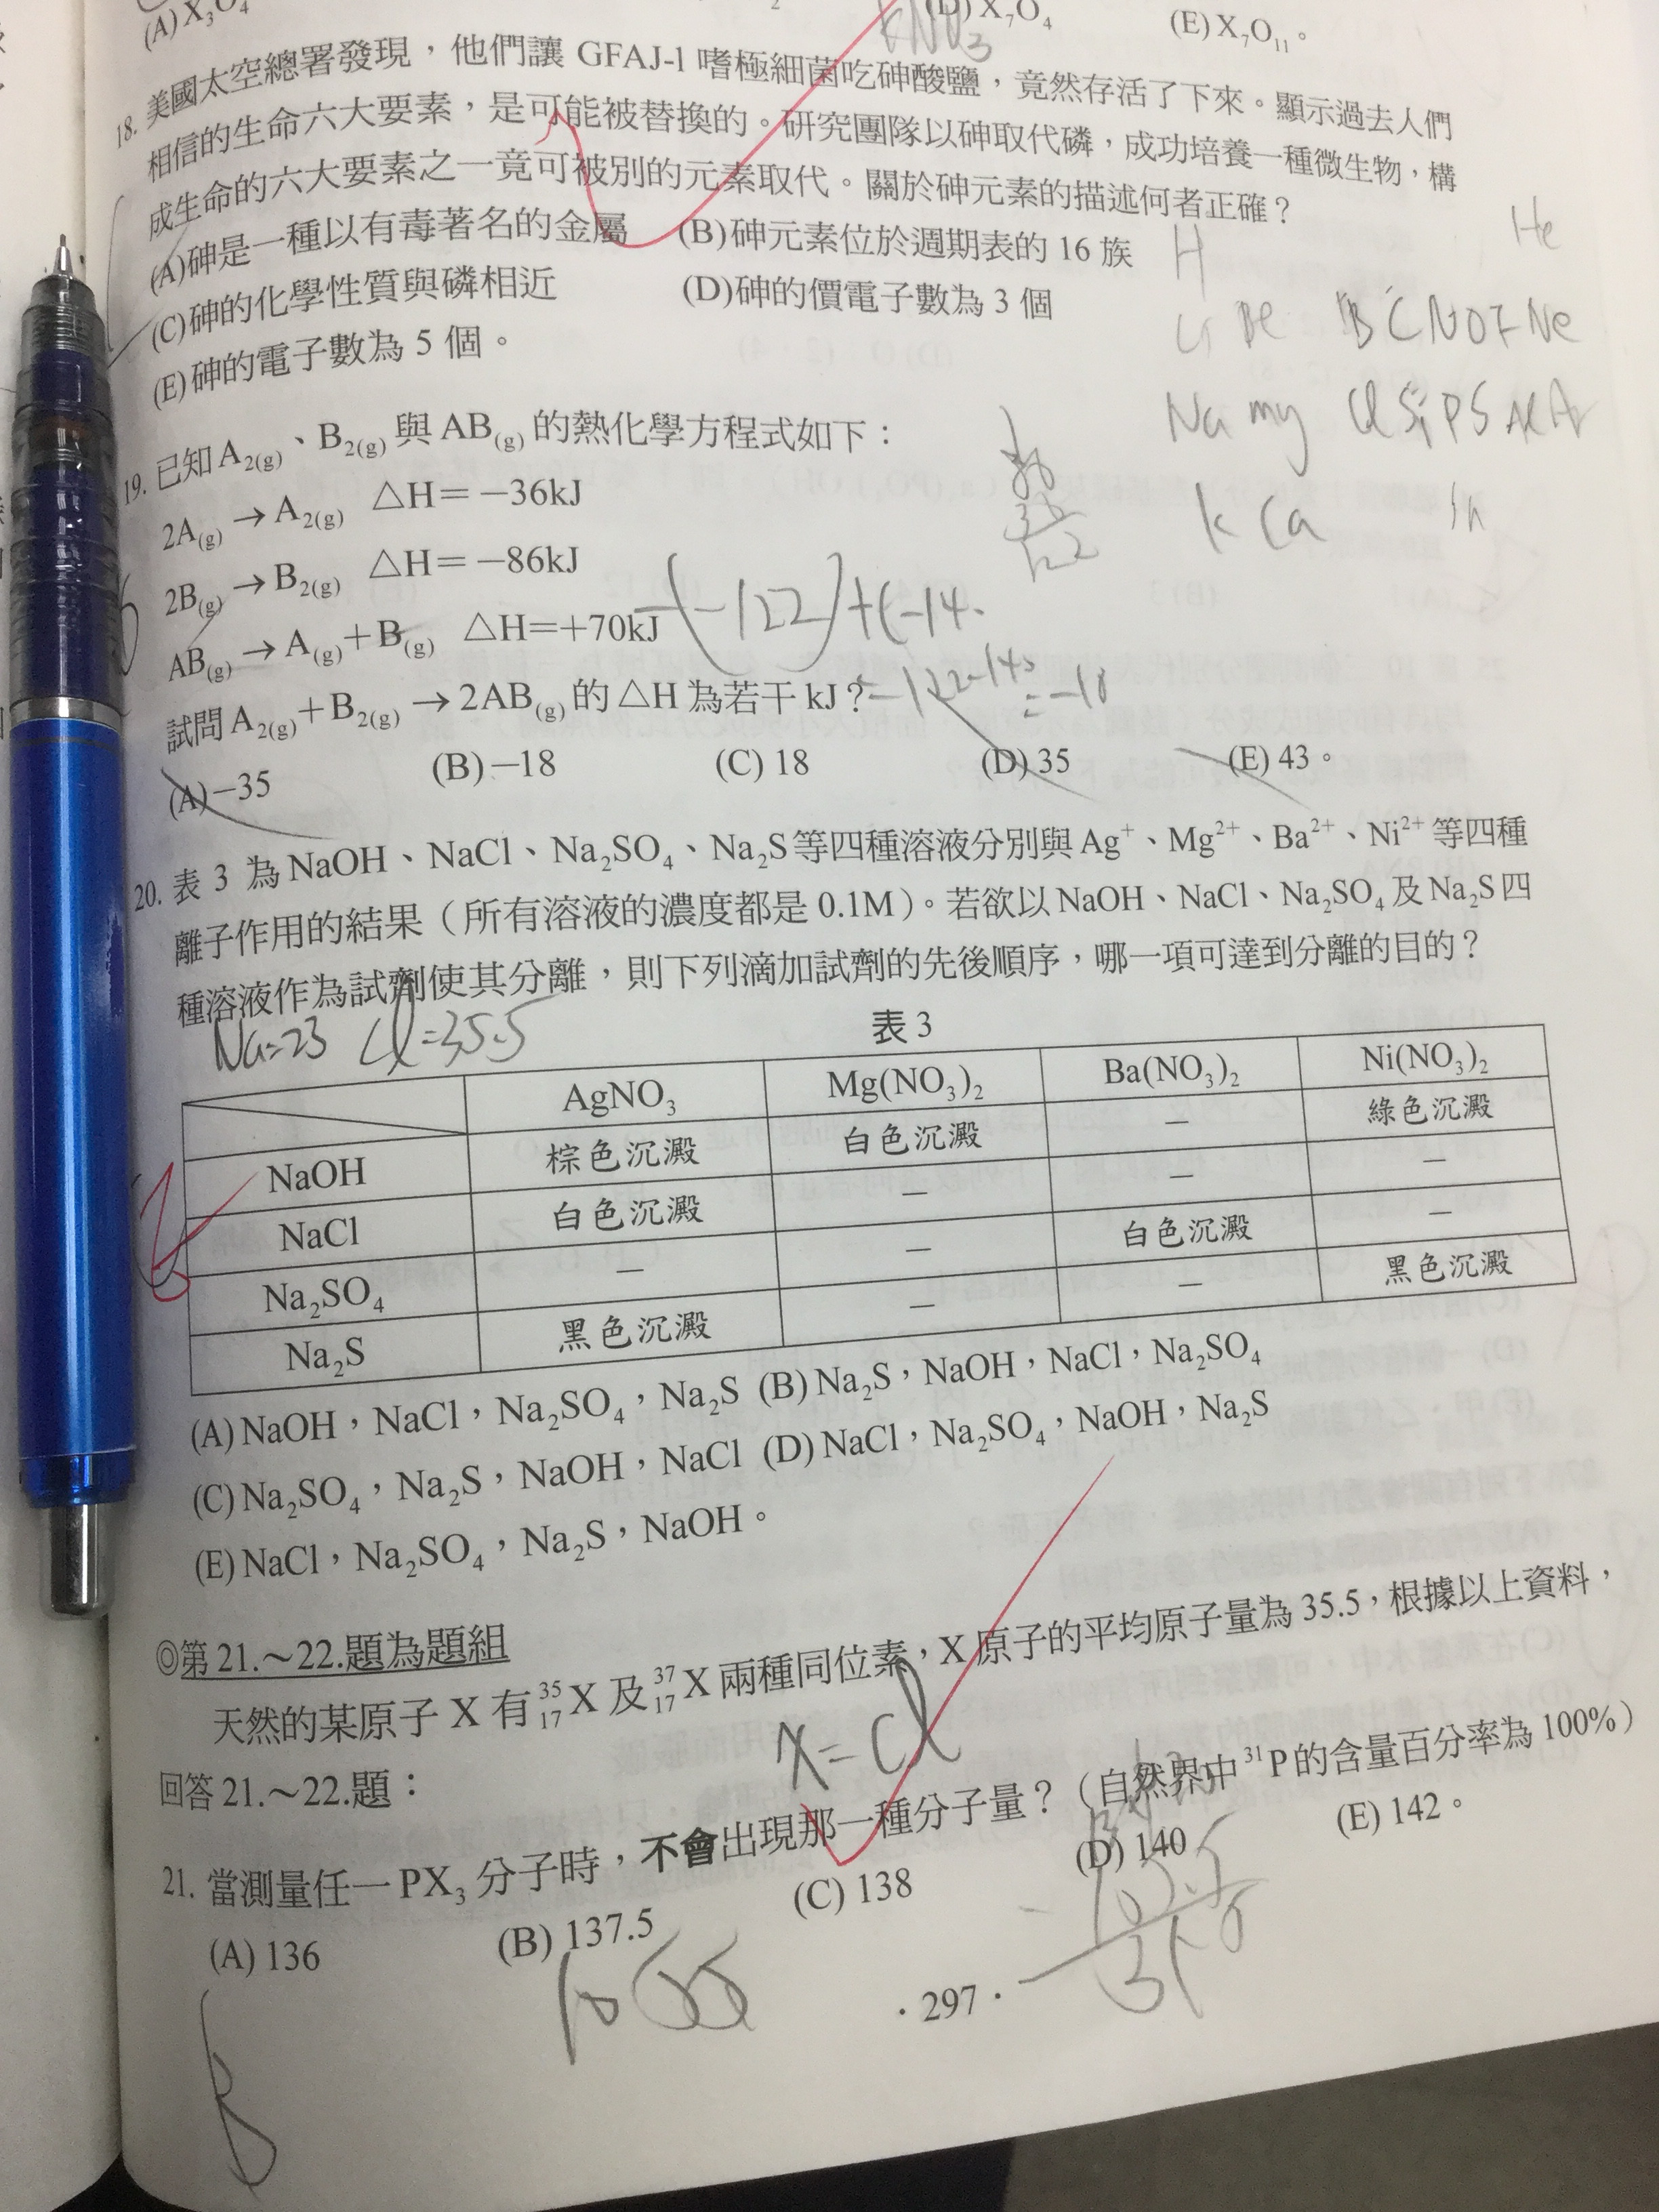 (A) X₃O₄ (D) X₇O₄ (E) X₇O₁₁。
KNO₃
18. 美國太空總署發現，他們讓 GFAJ-1 嗜極細菌吃砷酸鹽，竟然存活了下來。顯示過去人們
相信的生命六大要素，是可能被替換的。研究團隊以砷取代磷，成功培養一種微生物，構
成生命的六大要素之一竟可被別的元素取代。關於砷元素的描述何者正確？
(A)砷是一種以有毒著名的金屬 (B)砷元素位於週期表的 16 族
(C)砷的化學性質與磷相近 (D)砷的價電子數為 3 個
(E)砷的電子數為 5 個。
H He
Be B C N O F Ne
Na Mg Si P S
K Ca
19. 已知 A₂₍g₎、B₂₍g₎ 與 AB₍g₎ 的熱化學方程式如下：
2A₍g₎ → A₂₍g₎ △H＝－36kJ
2B₍g₎ → B₂₍g₎ △H＝－86kJ
AB₍g₎ → A₍g₎＋B₍g₎ △H＝＋70kJ
-(-122)+(-14
試問 A₂₍g₎＋B₂₍g₎ → 2AB₍g₎ 的 △H 為若干 kJ？
(A)－35 (B)－18 (C) 18 (D) 35 (E) 43。
20. 表 3 為 NaOH、NaCl、Na₂SO₄、Na₂S 等四種溶液分別與 Ag⁺、Mg²⁺、Ba²⁺、Ni²⁺ 等四種
離子作用的結果（所有溶液的濃度都是 0.1M）。若欲以 NaOH、NaCl、Na₂SO₄ 及 Na₂S 四
種溶液作為試劑使其分離，則下列滴加試劑的先後順序，哪一項可達到分離的目的？
Na=23 Cl=35.5
表 3
AgNO₃ Mg(NO₃)₂ Ba(NO₃)₂ Ni(NO₃)₂
NaOH 棕色沉澱 白色沉澱 － 綠色沉澱
NaCl 白色沉澱 － － －
Na₂SO₄ － － 白色沉澱 －
Na₂S 黑色沉澱 － － 黑色沉澱
(A) NaOH，NaCl，Na₂SO₄，Na₂S (B) Na₂S，NaOH，NaCl，Na₂SO₄
(C) Na₂SO₄，Na₂S，NaOH，NaCl (D) NaCl，Na₂SO₄，NaOH，Na₂S
(E) NaCl，Na₂SO₄，Na₂S，NaOH。
◎第 21.～22.題為題組
天然的某原子 X 有 ³⁵₁₇X 及 ³⁷₁₇X 兩種同位素，X 原子的平均原子量為 35.5，根據以上資料，
X=Cl
回答 21.～22.題：
21. 當測量任一 PX₃ 分子時，不會出現那一種分子量？（自然界中 ³¹P 的含量百分率為 100%）
(A) 136 (B) 137.5 (C) 138 (D) 140 (E) 142。
B
· 297 ·